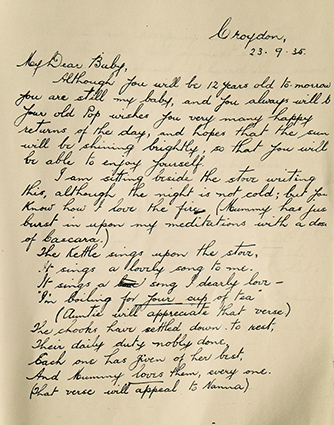 Croydon,
23.9.35.
My Dear Buby,
Although you will be 12 years old to-morrow
you are still my baby, and you always will b
Your old Pop wishes you very many happy
returns of the day, and hopes that the sun
will be shining brightly, so that you will
be able to enjoy yourself.
I am sitting beside the stove writing
this, although the night is not cold; but you
know how I love the fire (Mummy has jus
burst in upon my meditations with a dose
of Cascara.)
The Kettle sings upon the stove,
It sings a lovely song to me.
It sings a song I dearly love—
"I'm boiling for your cup of tea"
(Auntie will appreciate that verse)
The chooks have settled down to rest,
Their daily duty nobly done,
Each one has given of her best,
And Mummy loves them, every one.
(That verse will appeal to Nanna)